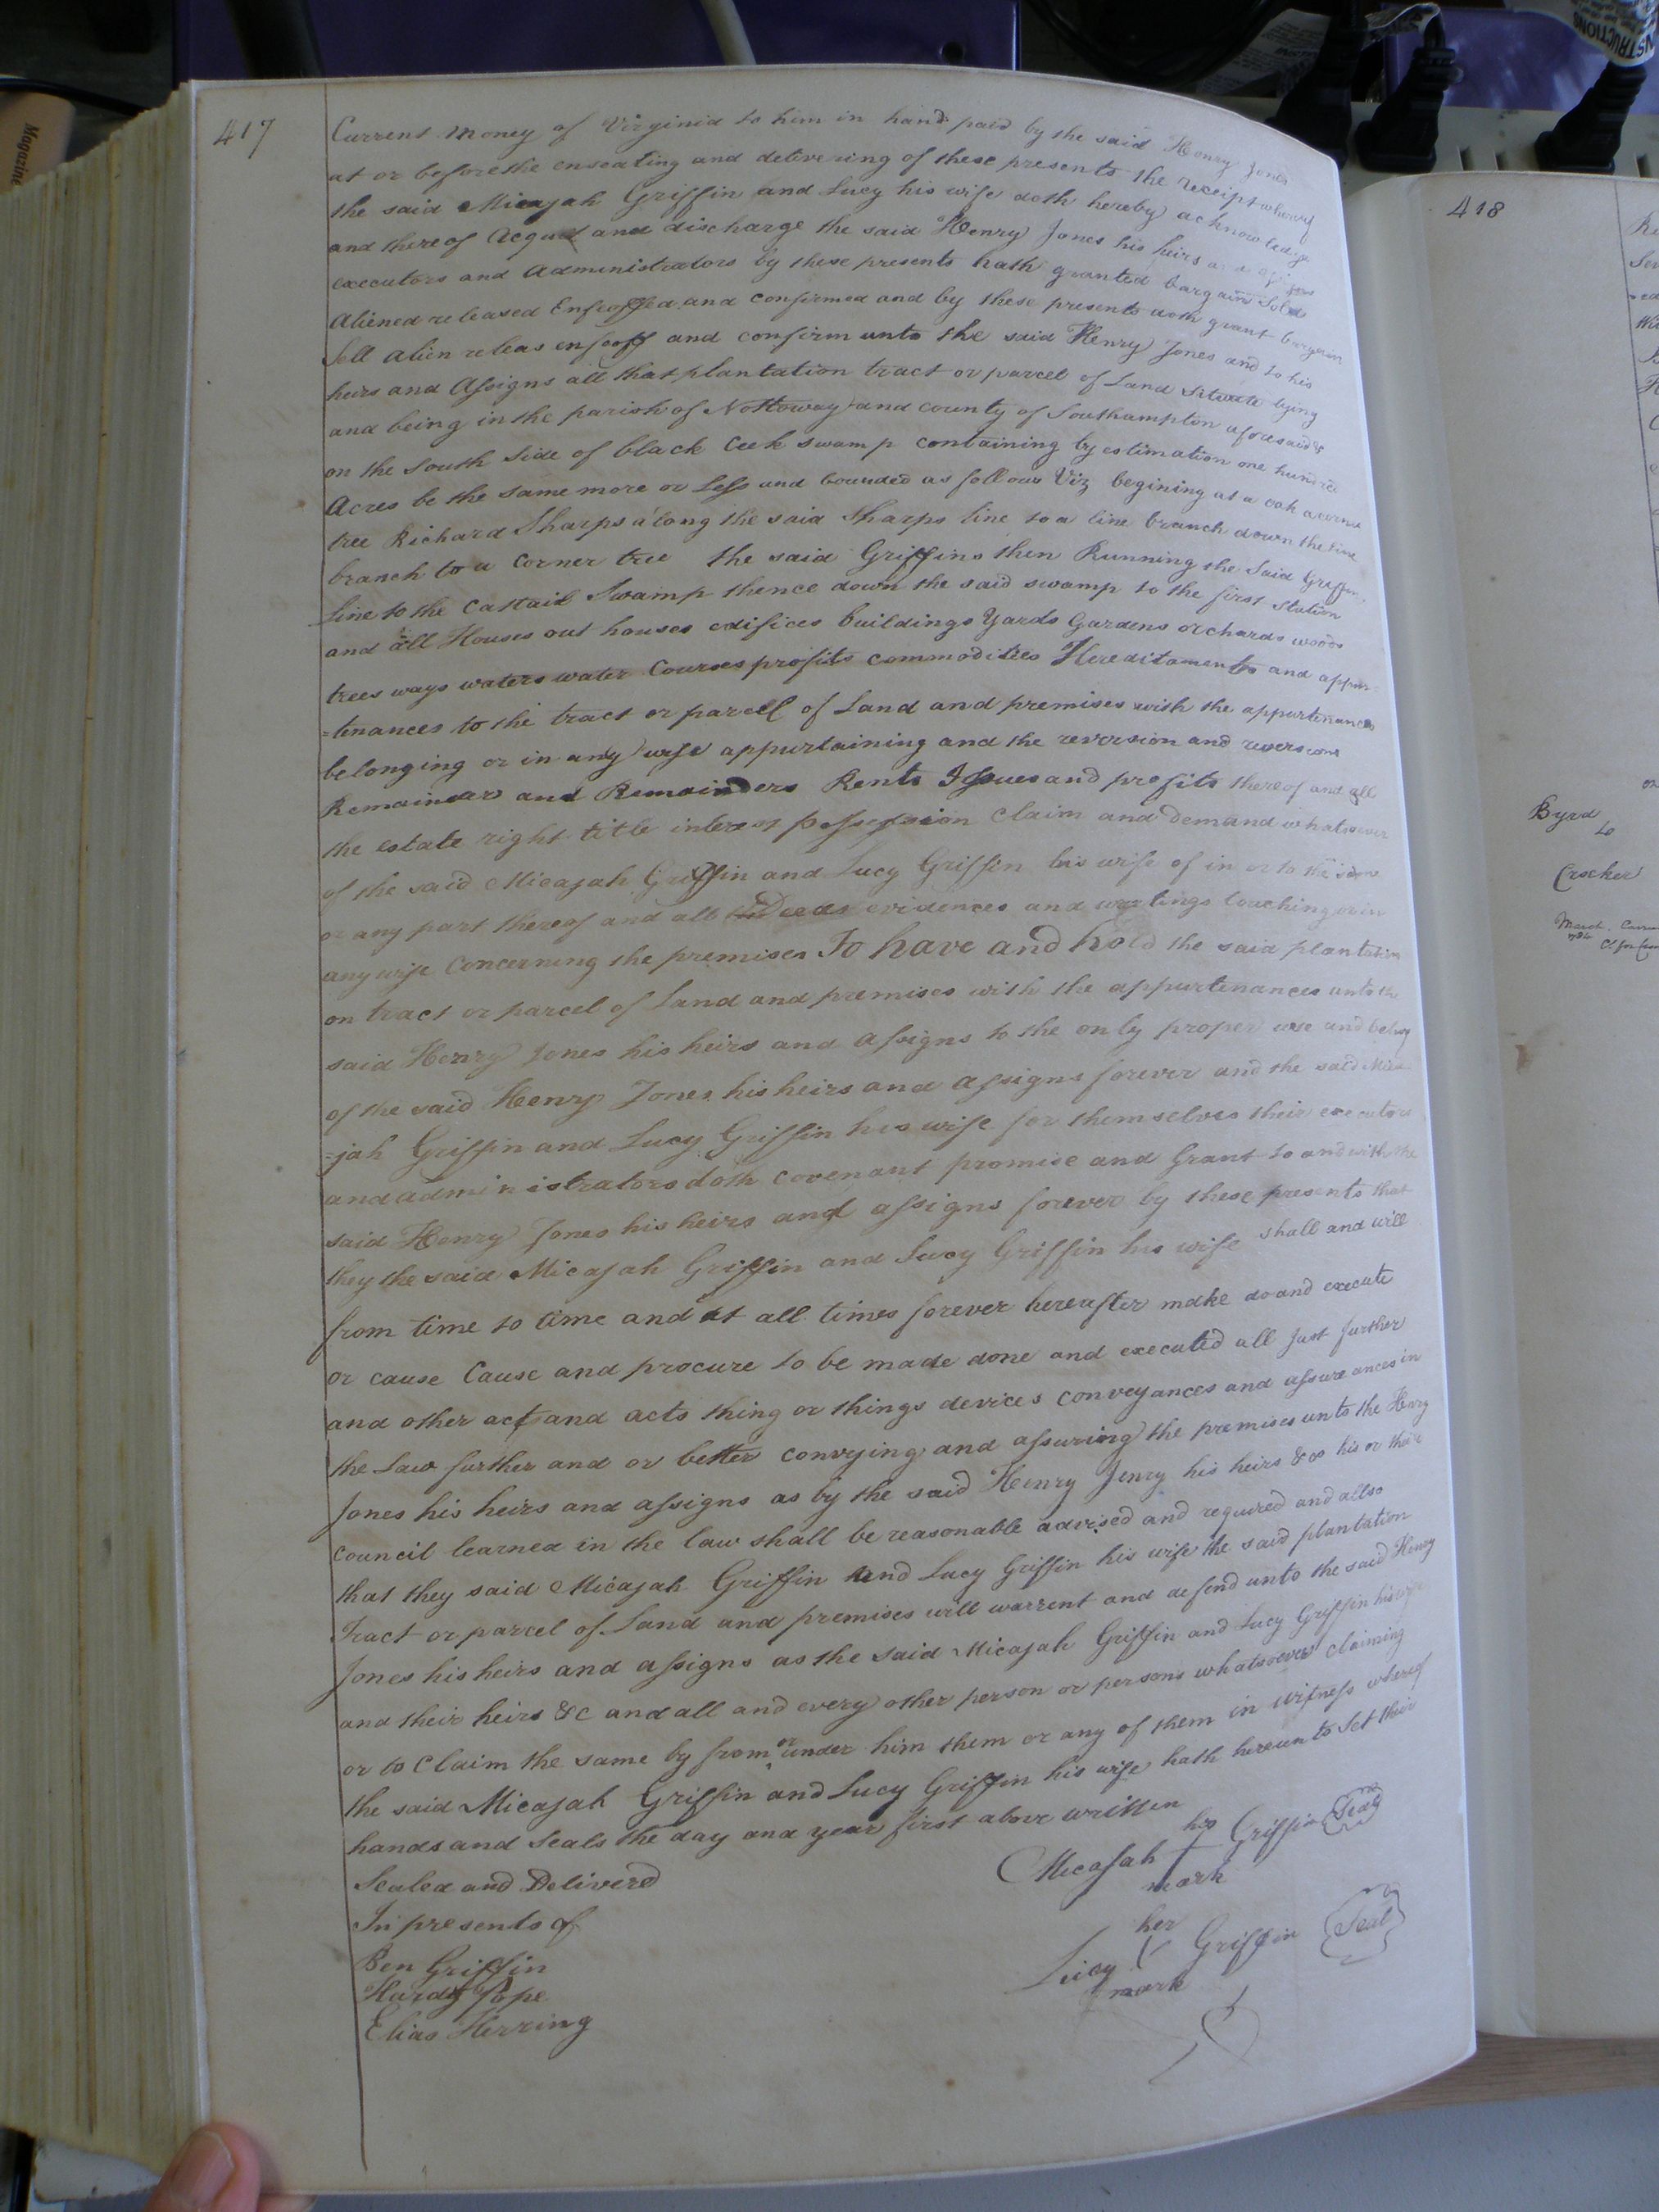 417
Current money of Virginia to him in hand paid by the said Henry Jones
at or before the ensealing and delivering of these presents the receipt whereof
the said Micajah Griffin and Lucy his wife doth hereby acknowledge
and thereof Acquit and discharge the said Henry Jones his heirs
executors and Administrators by these presents hath granted bargaind Sold
Aliened released Enfeoffed and confirmed and by these presents doth grant bargain
Sell alien releas enfeoff and confirm unto the said Henry Jones and to his
heirs and Assigns all that plantation tract or parcel of Land situate lying
and being in the parish of Nottoway and county of Southampton aforesaid &
on the South Side of black Ceek swamp containing by estimation one hundred
Acres be the same more or Less and bounded as follows Viz begining at a oak a corner
tree Richard Sharps along the said Sharps line to a line branch down the line
branch to a corner tree the said Griffins then Running the Said Griffins
line to the Cattail Swamp thence down the said swamp to the first station
and all Houses out houses edifices buildings Yards Gardens orchards woods
trees ways waters water Courses profits commodities Hereditaments and appur
=tenances to the tract or parcell of Land and premises with the appurtenances
belonging or in any wise appurtaining and the reversion and reversions
Remainder and Remainders Rents Issues and profits thereof and all
the estate right title interest possession Claim and Demand whatsoever
of the said Micajah Griffin and Lucy Griffin his wife of in or to the same
or any part thereof and all Deeds evidences and wrtings touching or in
any wise Concerning the premises To have and hold the said plantation
on tract or parcel of Land and premises with the appurtenances unto the
said Henry Jones his heirs and assigns to the only proper use and behoof
of the said Henry Jones his heirs and assigns forever and the said Mica
=jah Griffin and Lucy Griffin his wife for themselves their executors
and administrators doth covenant promise and Grant to and with the
said Henry Jones his heirs and assigns forever by these presents that
they the said Micajah Griffin and Lucy Griffin his wife shall and will
from time to time and at all times forever hereafter make do and execute
or cause Cause and procure to be made done and executed all Just further
and other act and acts thing or things devices conveyances and assureances in
the Law further and or better convying and assuring the premises unto the Henry
Jones his heirs and assigns as by the said Henry Jenry his heirs &c his or their
Council learned in the law shall be reasonable advised and required and allso
that they said Micajah Griffin and Lucy Griffin his wife the said plantation
Tract or parcel of Land and premises will warrent and defend unto the said Henry
Jones his heirs and assigns as the said Micajah Griffin and Lucy Griffin his wife
and their heirs &c and all and every other person or persons whatsoever claiming
or to Claim the same by from or under him them or any of them in witness whereof
the said Micajah Griffin and Lucy Griffin his wife hath hereunto Set their
hands and Seals the day and year first above written
Sealed and Deliverd
In presents of
Ben Griffin
Hardy Pope
Elias Herring
his
Micajah Griffin Seal
mark
her
Lucy Griffin Seal
mark
418
Byrd
to
Crocker
INSTRUCTIONS
Magazine